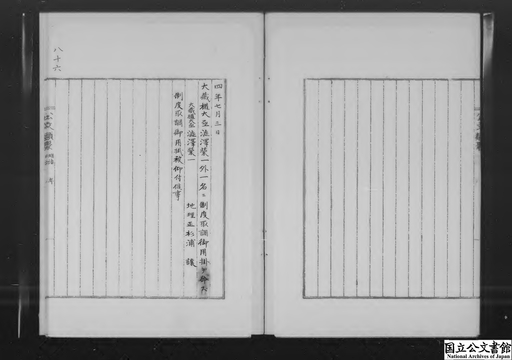 八十六
四年七月三日
大蔵権大丞渋澤榮一外一名ニ制度取調御用掛ヲ命ス
大蔵権大丞 渋澤榮一
地理正 杉浦 譲
制度取調御用掛被仰付候事
国立公文書館
National Archives of Japan